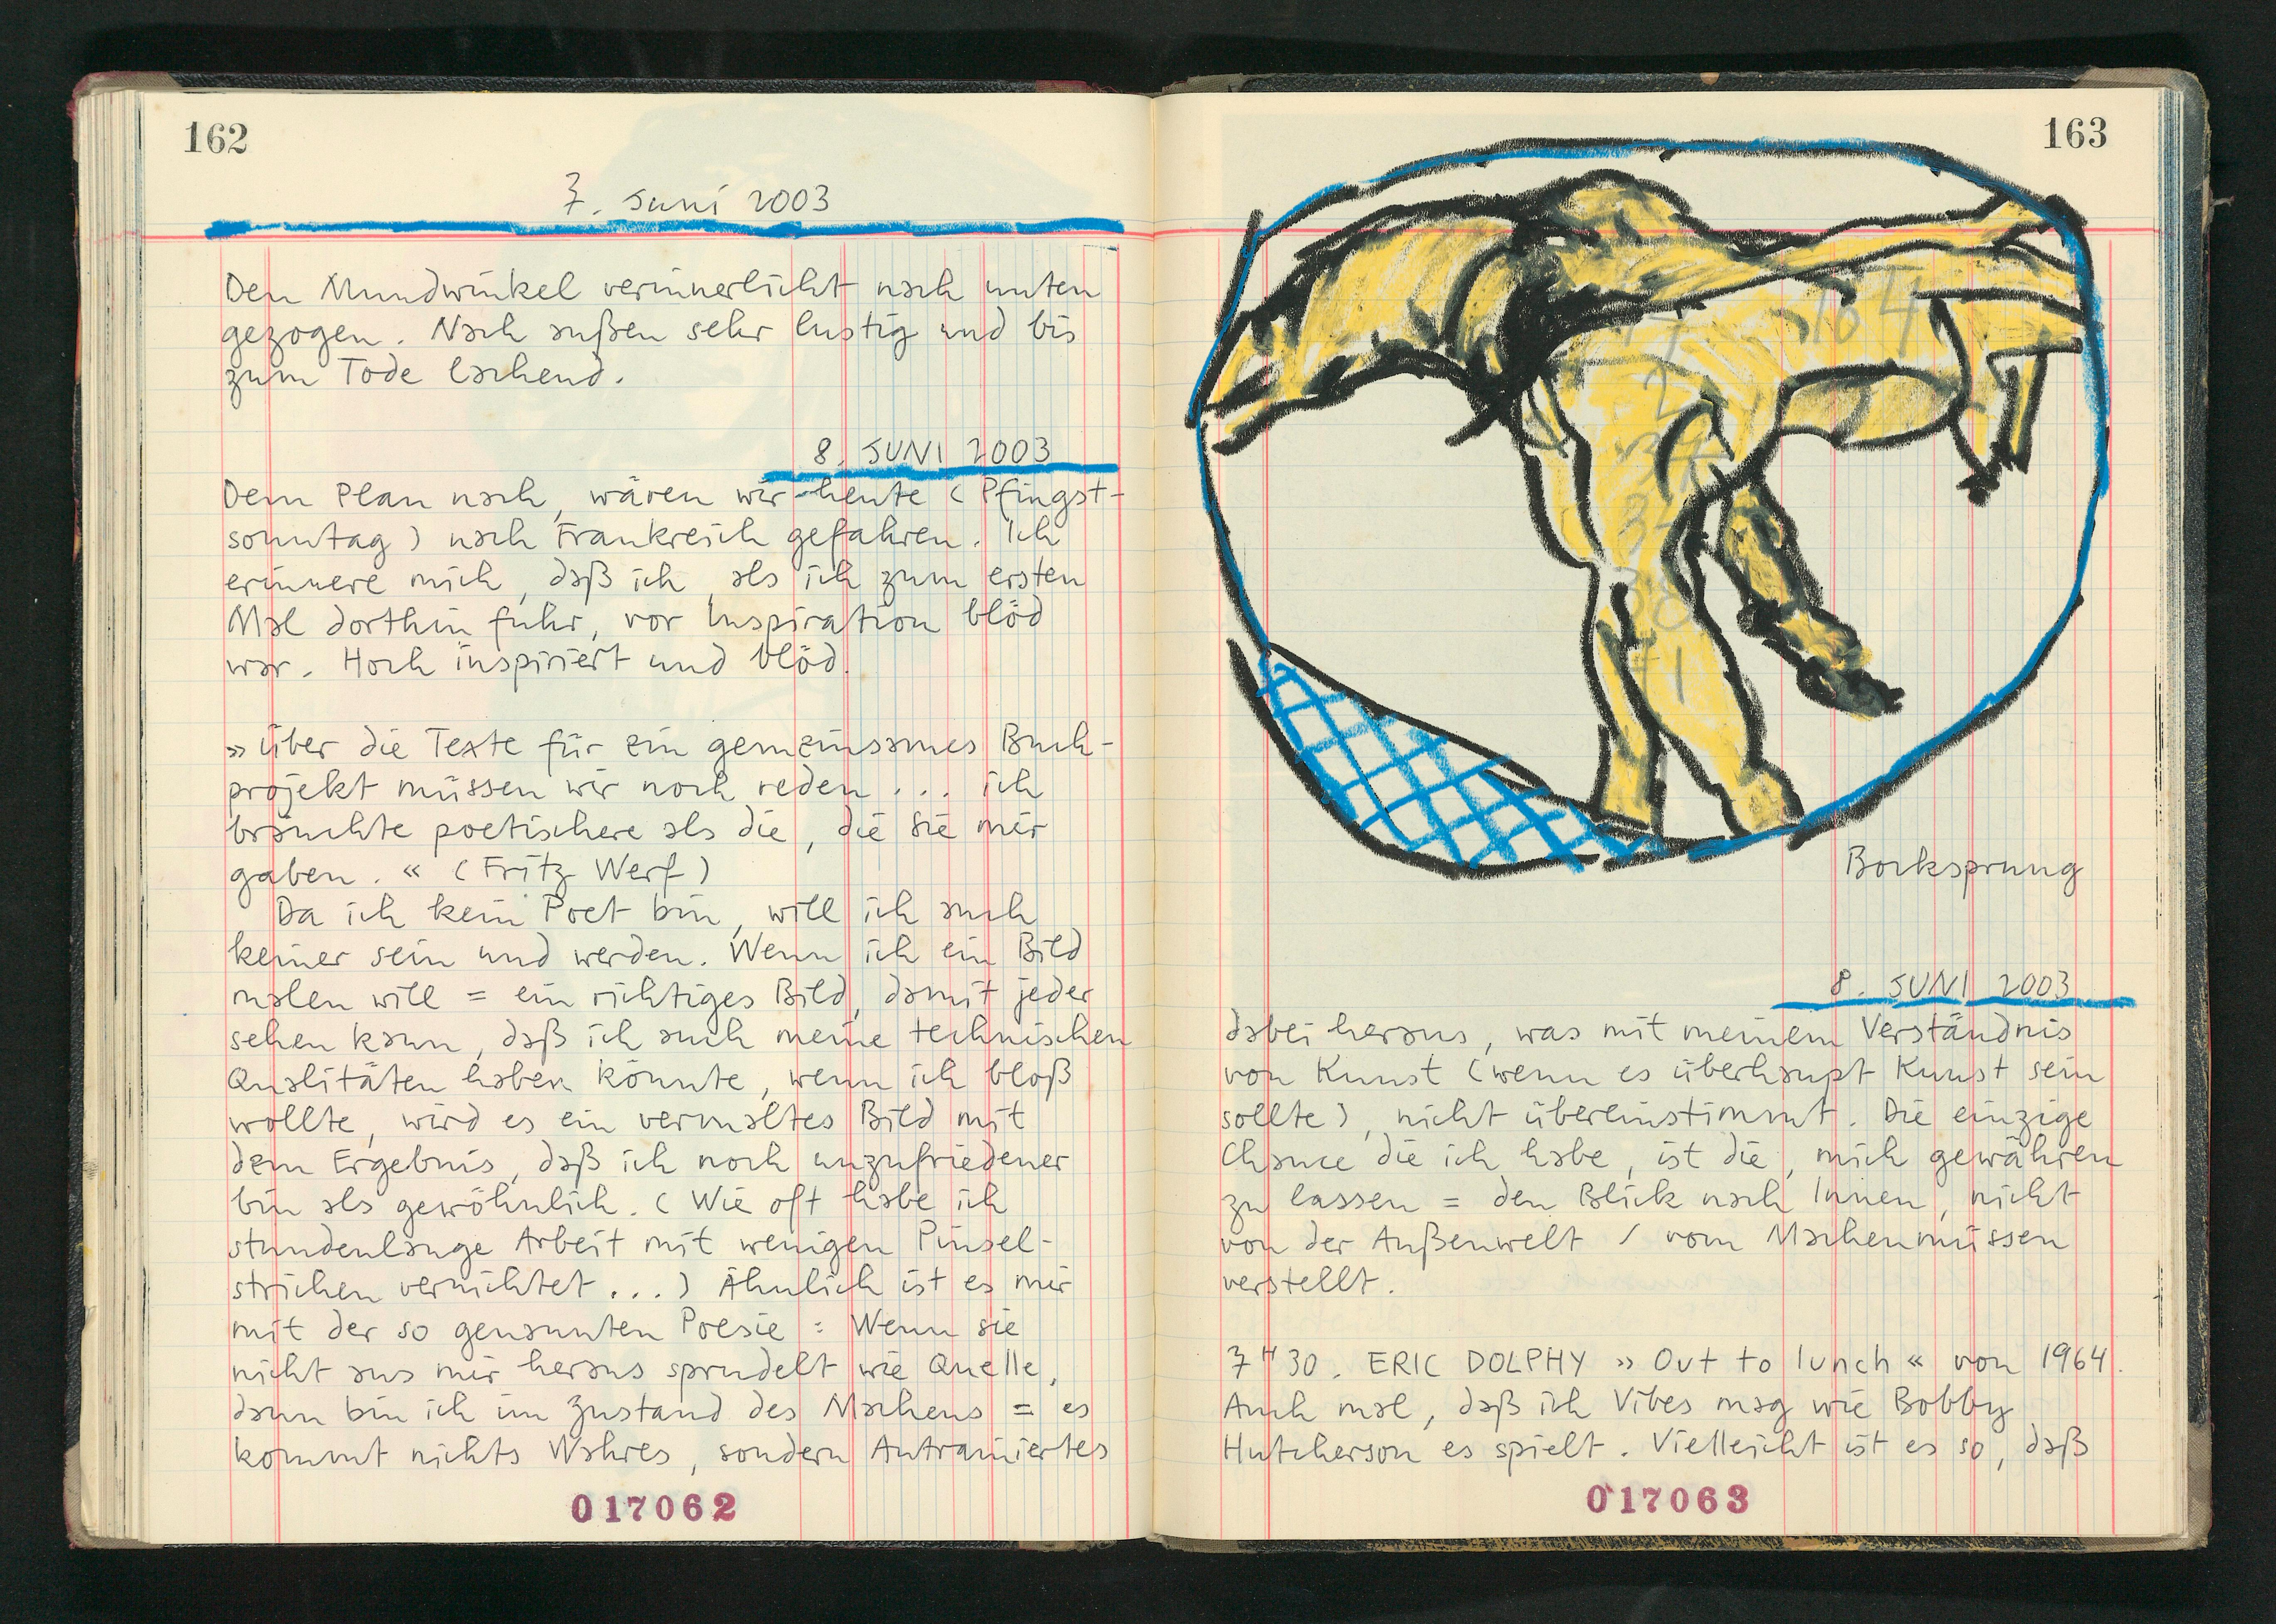 162
7. Juni 2003
Den Mundwinkel verinnerlicht nach unten
gezogen. Nach außen sehr lustig und bis
zum Tode lachend.
8. JUNI 2003
Dem Plan nach, wären wir heute (Pfingst-
sonntag) nach Frankreich gefahren. Ich
erinnere mich, daß ich, als ich zum ersten
Mal dorthin fuhr, vor Inspiration blöd
war. Hoch inspiriert und blöd.
»Über die Texte für ein gemeinsames Buch-
projekt müssen wir noch reden... ich
brauchte poetischere als die, die Sie mir
gaben.« (Fritz Werf)
Da ich kein Poet bin, will ich auch
keiner sein und werden. Wenn ich ein Bild
malen will = ein richtiges Bild, damit jeder
sehen kann, daß ich auch meine technischen
Qualitäten haben könnte, wenn ich bloß
wollte, wird es ein vermaltes Bild mit
dem Ergebnis, daß ich noch unzufriedener
bin als gewöhnlich. (Wie oft habe ich
stundenlange Arbeit mit wenigen Pinsel-
strichen vernichtet...) Ähnlich ist es mir
mit der so genannten Poesie: Wenn sie
nicht aus mir heraus sprudelt wie Quelle,
dann bin ich im Zustand des Machens = es
kommt nichts Wahres, sondern Antrainiertes
017062
163
Bocksprung
8. JUNI 2003
dabei heraus, was mit meinem Verständnis
von Kunst (wenn es überhaupt Kunst sein
sollte), nicht übereinstimmt. Die einzige
Chance die ich habe, ist die, mich gewähren
zu lassen = den Blick nach Innen, nicht
von der Außenwelt / vom Machenmüssen
verstellt.
7H30. ERIC DOLPHY »Out to lunch« von 1964.
Auch mal, daß ich Vibes mag wie Bobby
Hutcherson es spielt. Vielleicht ist es so, daß
017063